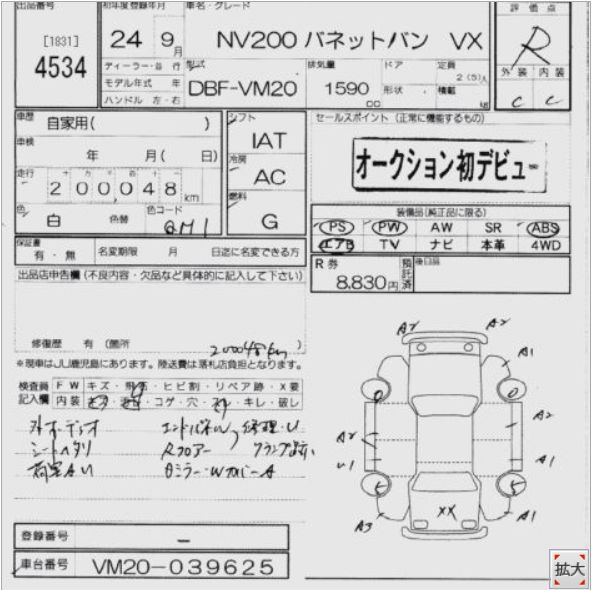 出品番号
[1831]
4534
初年度登録年月
24 9月
車名・グレード
NV200 バネットバン VX
評価点
R
外装 内装
C C
ディーラー・並行
モデル年式 年
ハンドル 左・右
型式
DBF-VM20
排気量
1590
cc
ドア
形状
定員
2(5)人
積載
kg
車歴
自家用( )
車検
年 月( 日)
走行
200,048km
色
白
色替
色コード
QM1
シフト
IAT
冷房
AC
燃料
G
セールスポイント(正常に機能するもの)
オークション初デビュー
装備品(純正品に限る)
PS PW AW SR ABS
エアB TV ナビ 本革 4WD
R券
8,830円
預託済
後日品
保証書
有・無
名変期限 月 日迄に名変できる方
出品店申告欄(不良内容・欠品など具体的に記入して下さい)
修復歴 有(箇所 )
200048km
※現車はJU鹿児島にあります。陸送費は落札店負担となります。
検査員
記入欄
FW キズ・飛石・ヒビ割・リペア跡・X要
内装 コゲ・穴・キレ・破レ
外オーディオ
シートヘタリ
荷室AU
Rフロアー
A2 A2
A1
A2
A2
U1
A1
A3
A1
XX
登録番号
ー
車台番号
VM20-039625
拡大